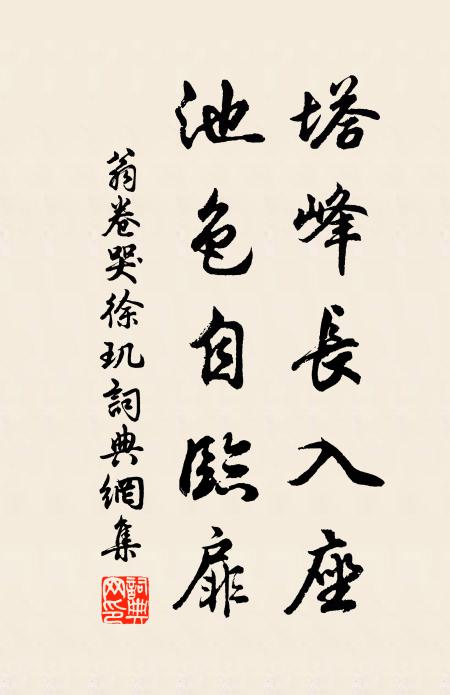 塔峰長入座
池色自臨扉
翁卷哭徐玑詞典網集
詞典网印